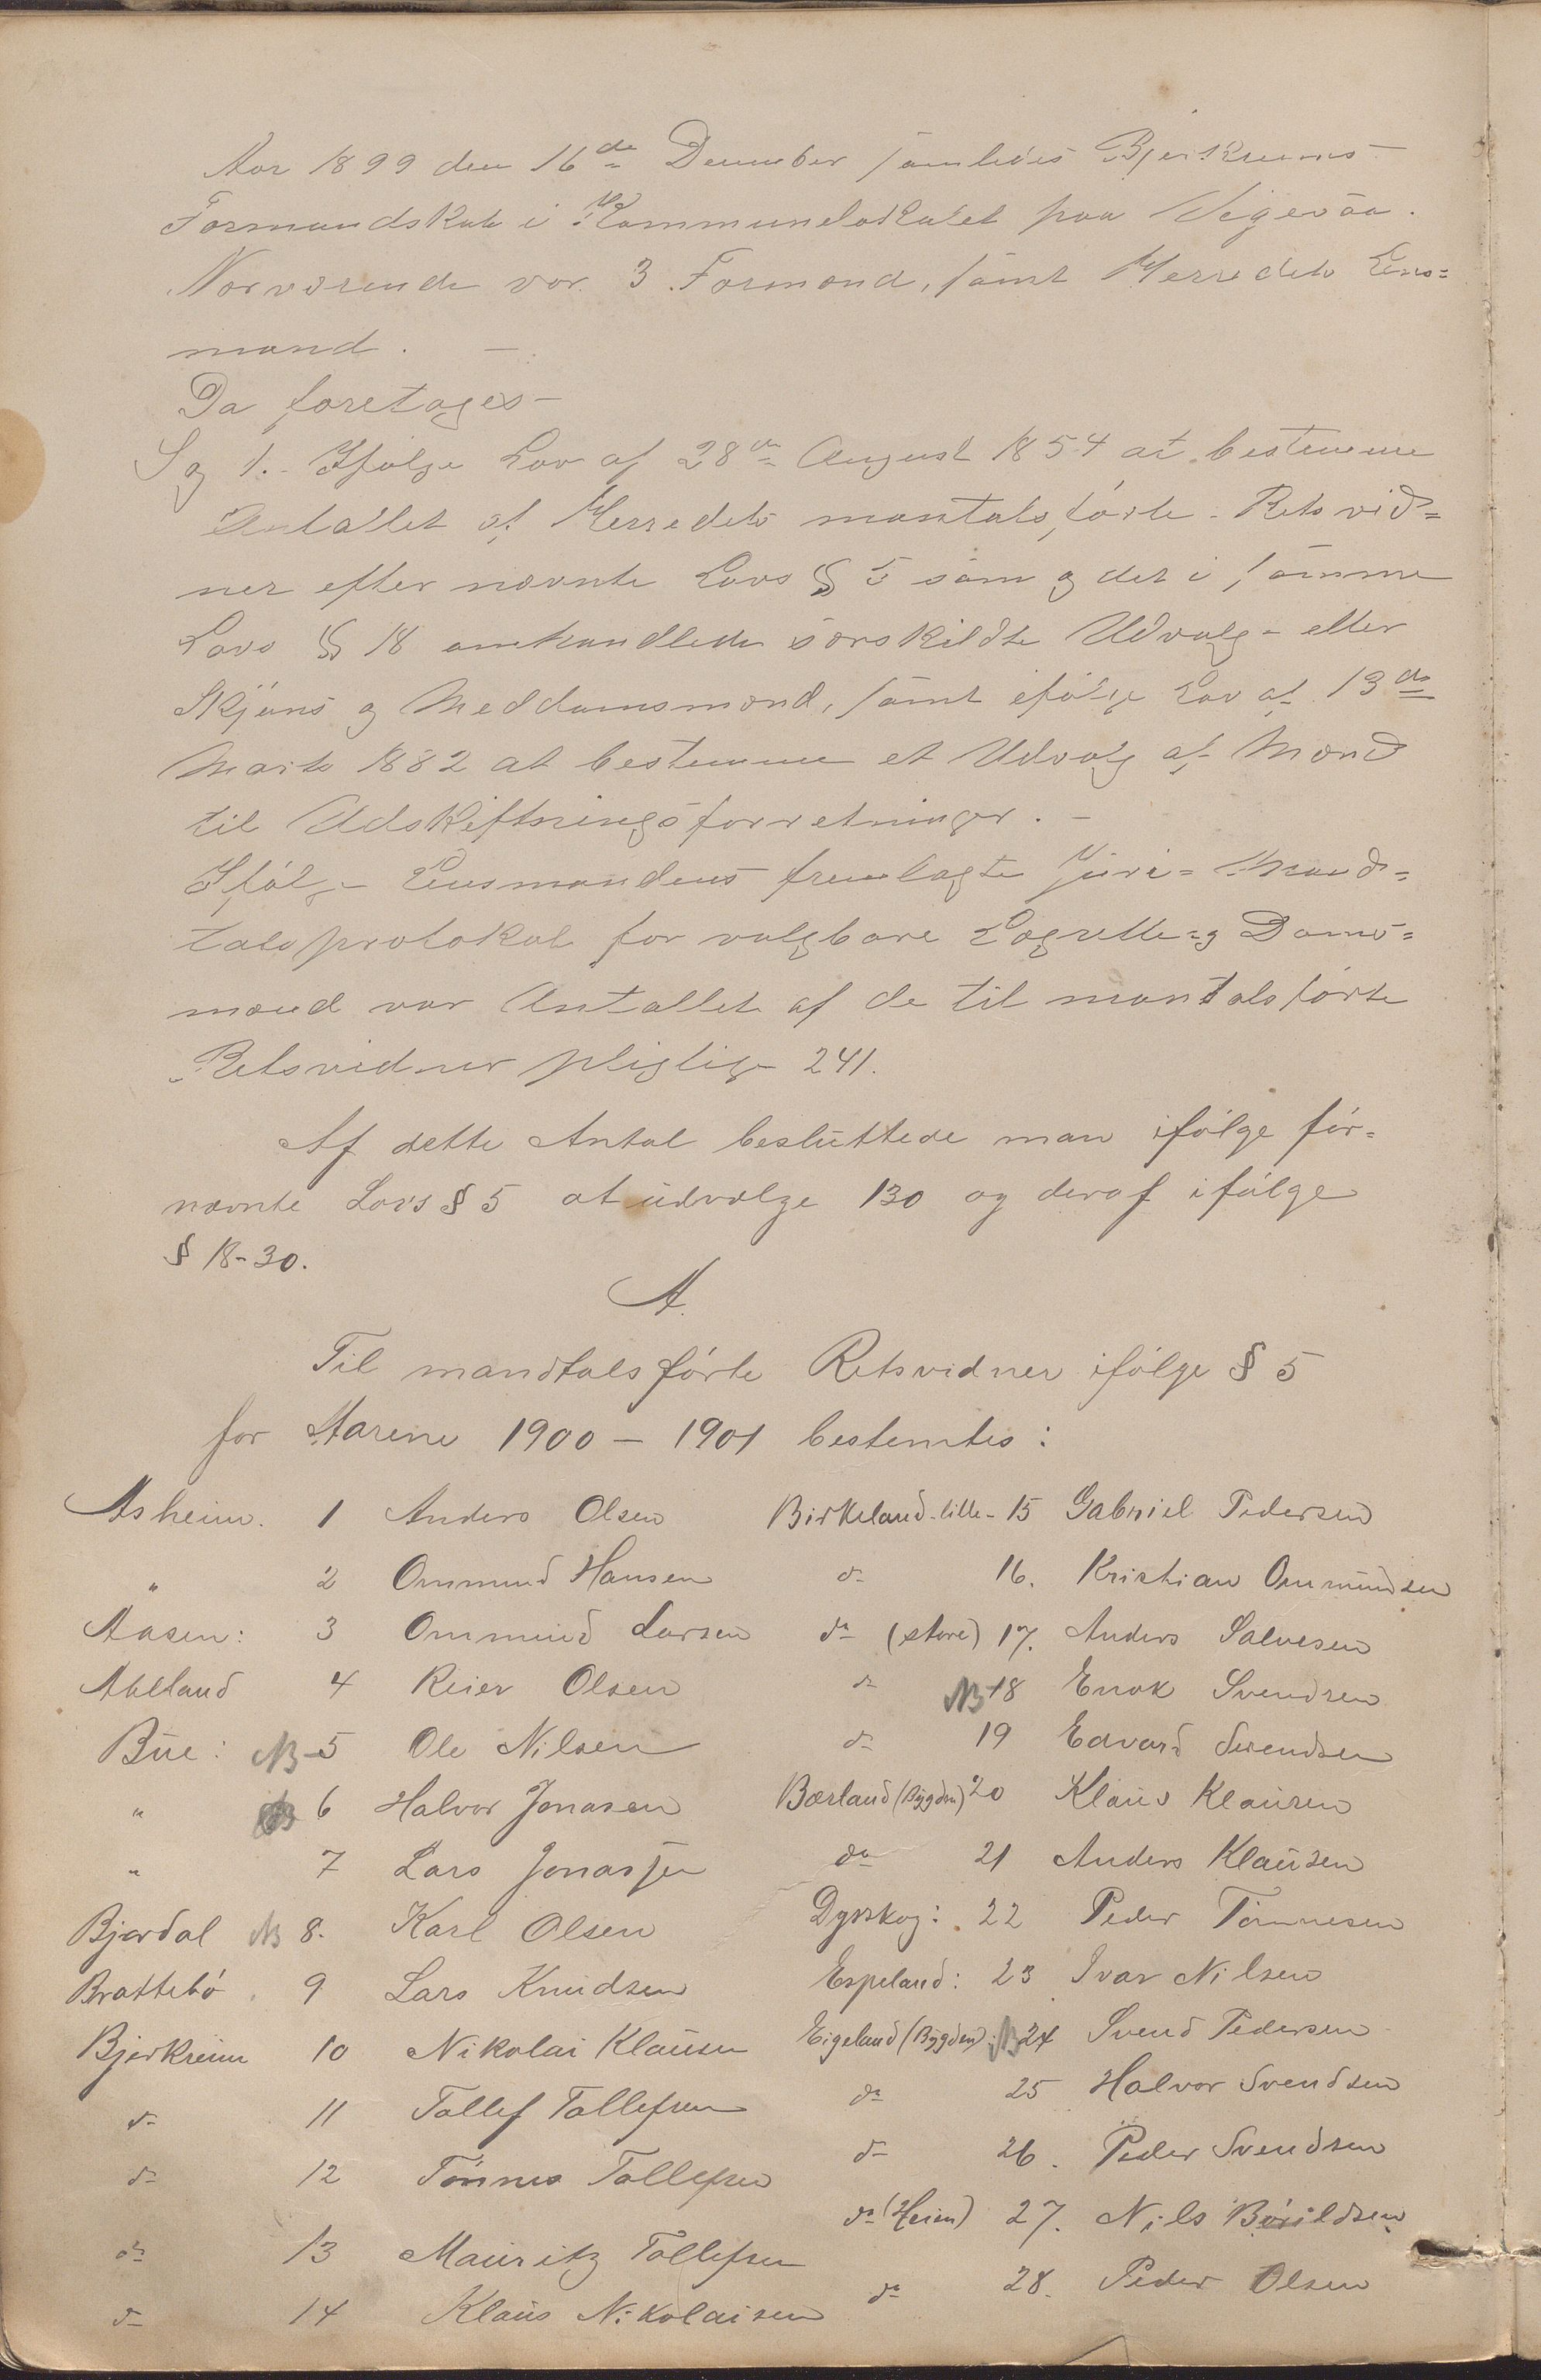 Aar 1899 den 16de December samledes Bjerkreims
Formandskab i Kommunelokalet paa Vigesaa.
Nærværende var 3 Formænd, samt Herredets Lens=
mand. –
Da foretages –
Sag 1. Ifølge Lov af 28de August 1854 at bestemme
Antallet af Herredets mantalsførte Retsvid=
ner efter nævnte Lovs § 5 som og det i samme
Lovs § 18 omhandlede særskildte Udvalg eller
Skjøns og Meddomsmænd, samt ifølge Lov af 13de
Marts 1882 at bestemme et Udvalg af Mænd
til Udskiftningsforretninger. –
Ifølge Lensmandens fremlagte Juri= Mand=
talsprotokol for valgbare Lagrette= og Doms=
mænd var Antallet af de til mantalsførte
Retsvidner pligtige 241.
Af dette Antal besluttede man ifølge før=
nævnte Lovs § 5 at udvælge 130 og deraf ifølge
§ 18 – 30.
A.
Til mandtalsførte Retsvidner ifølge § 5
for Aarene 1900 – 1901 bestemtes:
Asheim. 1 Anders Olsen
" 2 Ommund Hansen
Aasen: 3 Ommund Larsen
Abeland 4 Reier Olsen
Bue: NB 5 Ole Nilsen
" 6 Halvor Jonasen
" 7 Lars Jonassen
Bjordal NB 8. Karl Olsen
Brattebø 9 Lars Knudsen
Bjerkreim 10 Nikolai Klausen
do 11 Tollef Tollefsen
do 12 Tønnes Tollefsen
do 13 Mauritz Tollefsen
do 14 Klaus Nikolaisen
Birkeland lille – 15 Gabriel Pedersen
do 16. Kristian Ommundsen
do (store) 17. Anders Salvesen
do NB 18 Enok Svendsen
do 19 Edvard Svendsen
Bærland (Bygden) 20 Klaus Klausen
do 21 Anders Klausen
Dyrskog: 22 Peder Tønnesen
Espeland: 23 Ivar Nilsen
Eigeland (Bygden): NB 24 Svend Pedersen
do 25 Halvor Svendsen
do 26. Peder Svendsen
do (Heien) 27. Nils Børildsen
do 28. Peder Olsen